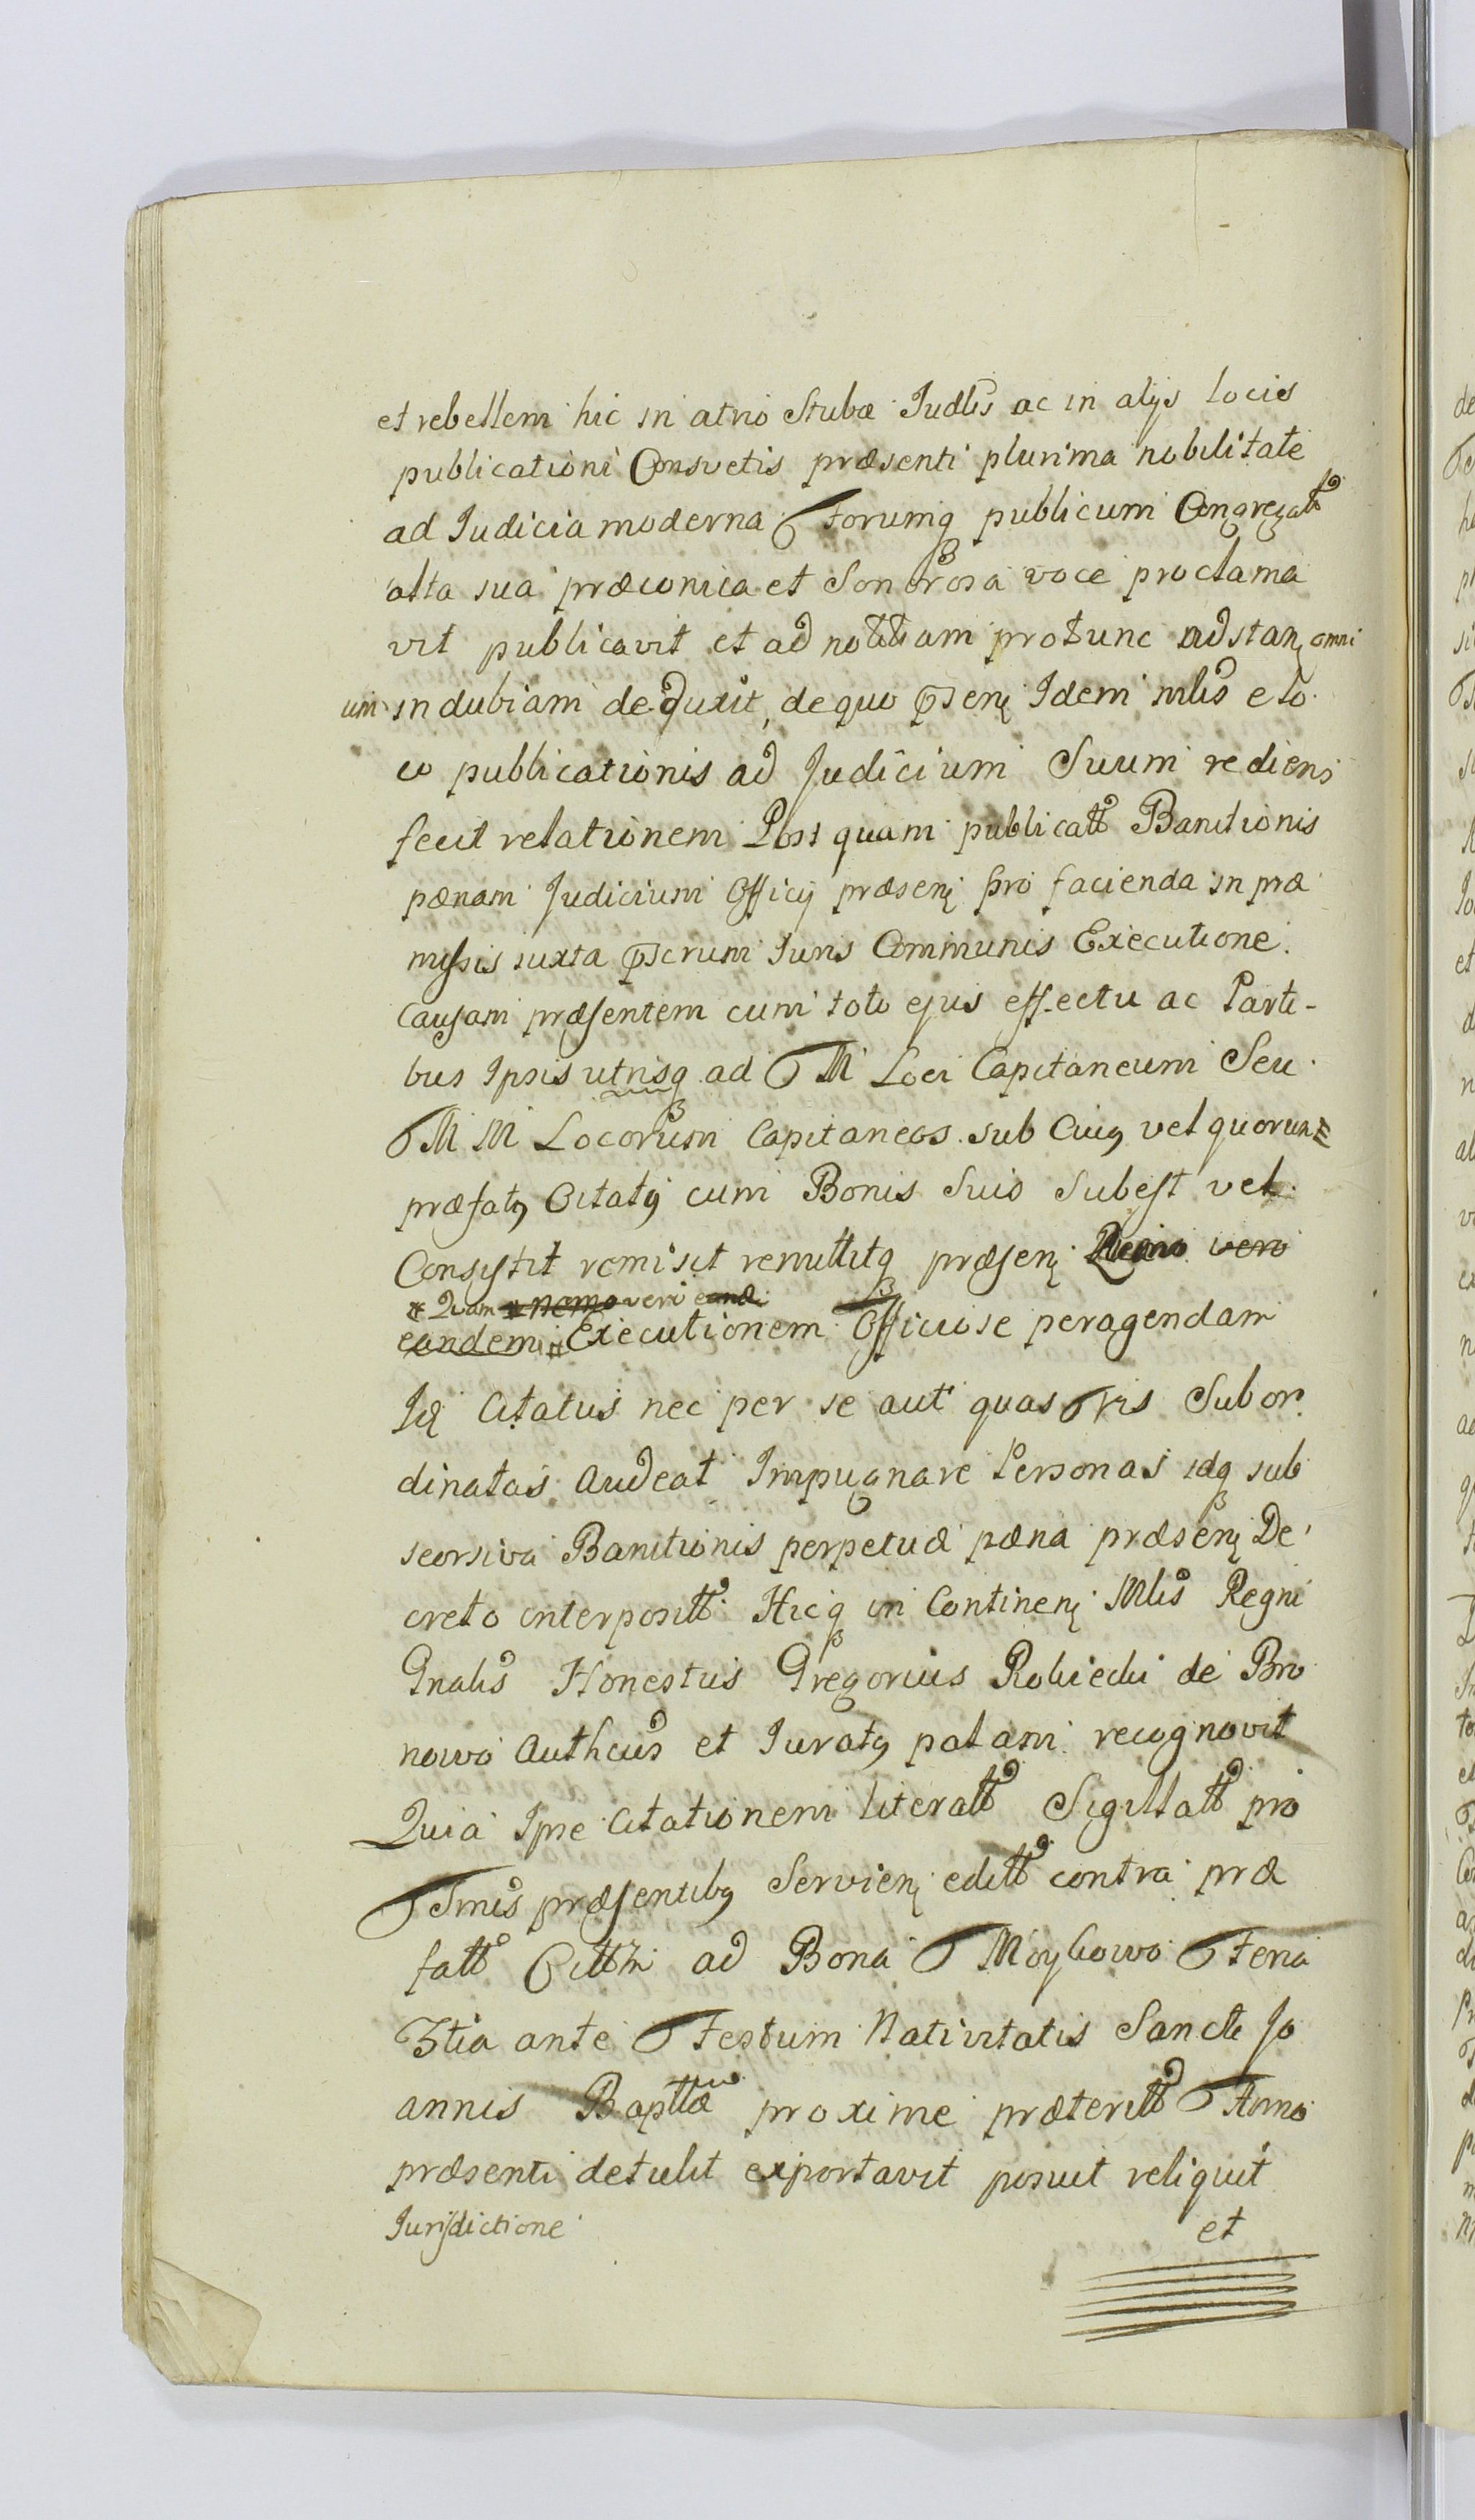 et rebellem hic in atrio Stubæ Judlis ac in alijs locis
publicationi Consvetis præsenti plurima nobilitate
ad Judicia moderna Forumq publicum Congregatt
alta sua præconica et Sonorosa voce proclama
vit publicavit et ad nottiam protunc adstan omni
um indubiam deduxit, de quo Idem mlis e lo
co publicationis ad Judicium Suum rediens
fecit relationem Post quam publicatt Banitionis
pænam Judicium Officij præsen pro facienda in præ
missis iuxta Juris Communis Executione.
Causam præsentem cum toto ejus effectu ac Parti-
bus Ipsis utrisq ad M Loci Capitaneum Seu
M M Locorum Capitaneos sub Cuiq vel quorum
præfatq Citatq cum Bonis Suis Subest vel
Consistit remisit remittitq præsen vero
Quam nemo vero eand
eandem Executionem Officiose peragendam
Citatus nec per se aut quasvis Subor
dinatas Audeat Impugnare Personas idq sub
seorsiva Banitionis perpetuæ pæna præsen De
creto interpositt Hicq in Continen Mlis Regni
Gnalis Honestus Gregorius de Bro
nowo Authcus et Juratq palam recognovit
Quia Ipse Citationem literatt Sigillatt pro
Tmis præsentibq Servien editt contra præ
fatt ad Bona Feria
3tia ante Festum Nativitatis Sancti Jo
annis Bapttæ proxime præteritt Anno
præsenti detulit exportavit posuit reliquit
Jurisdictione et